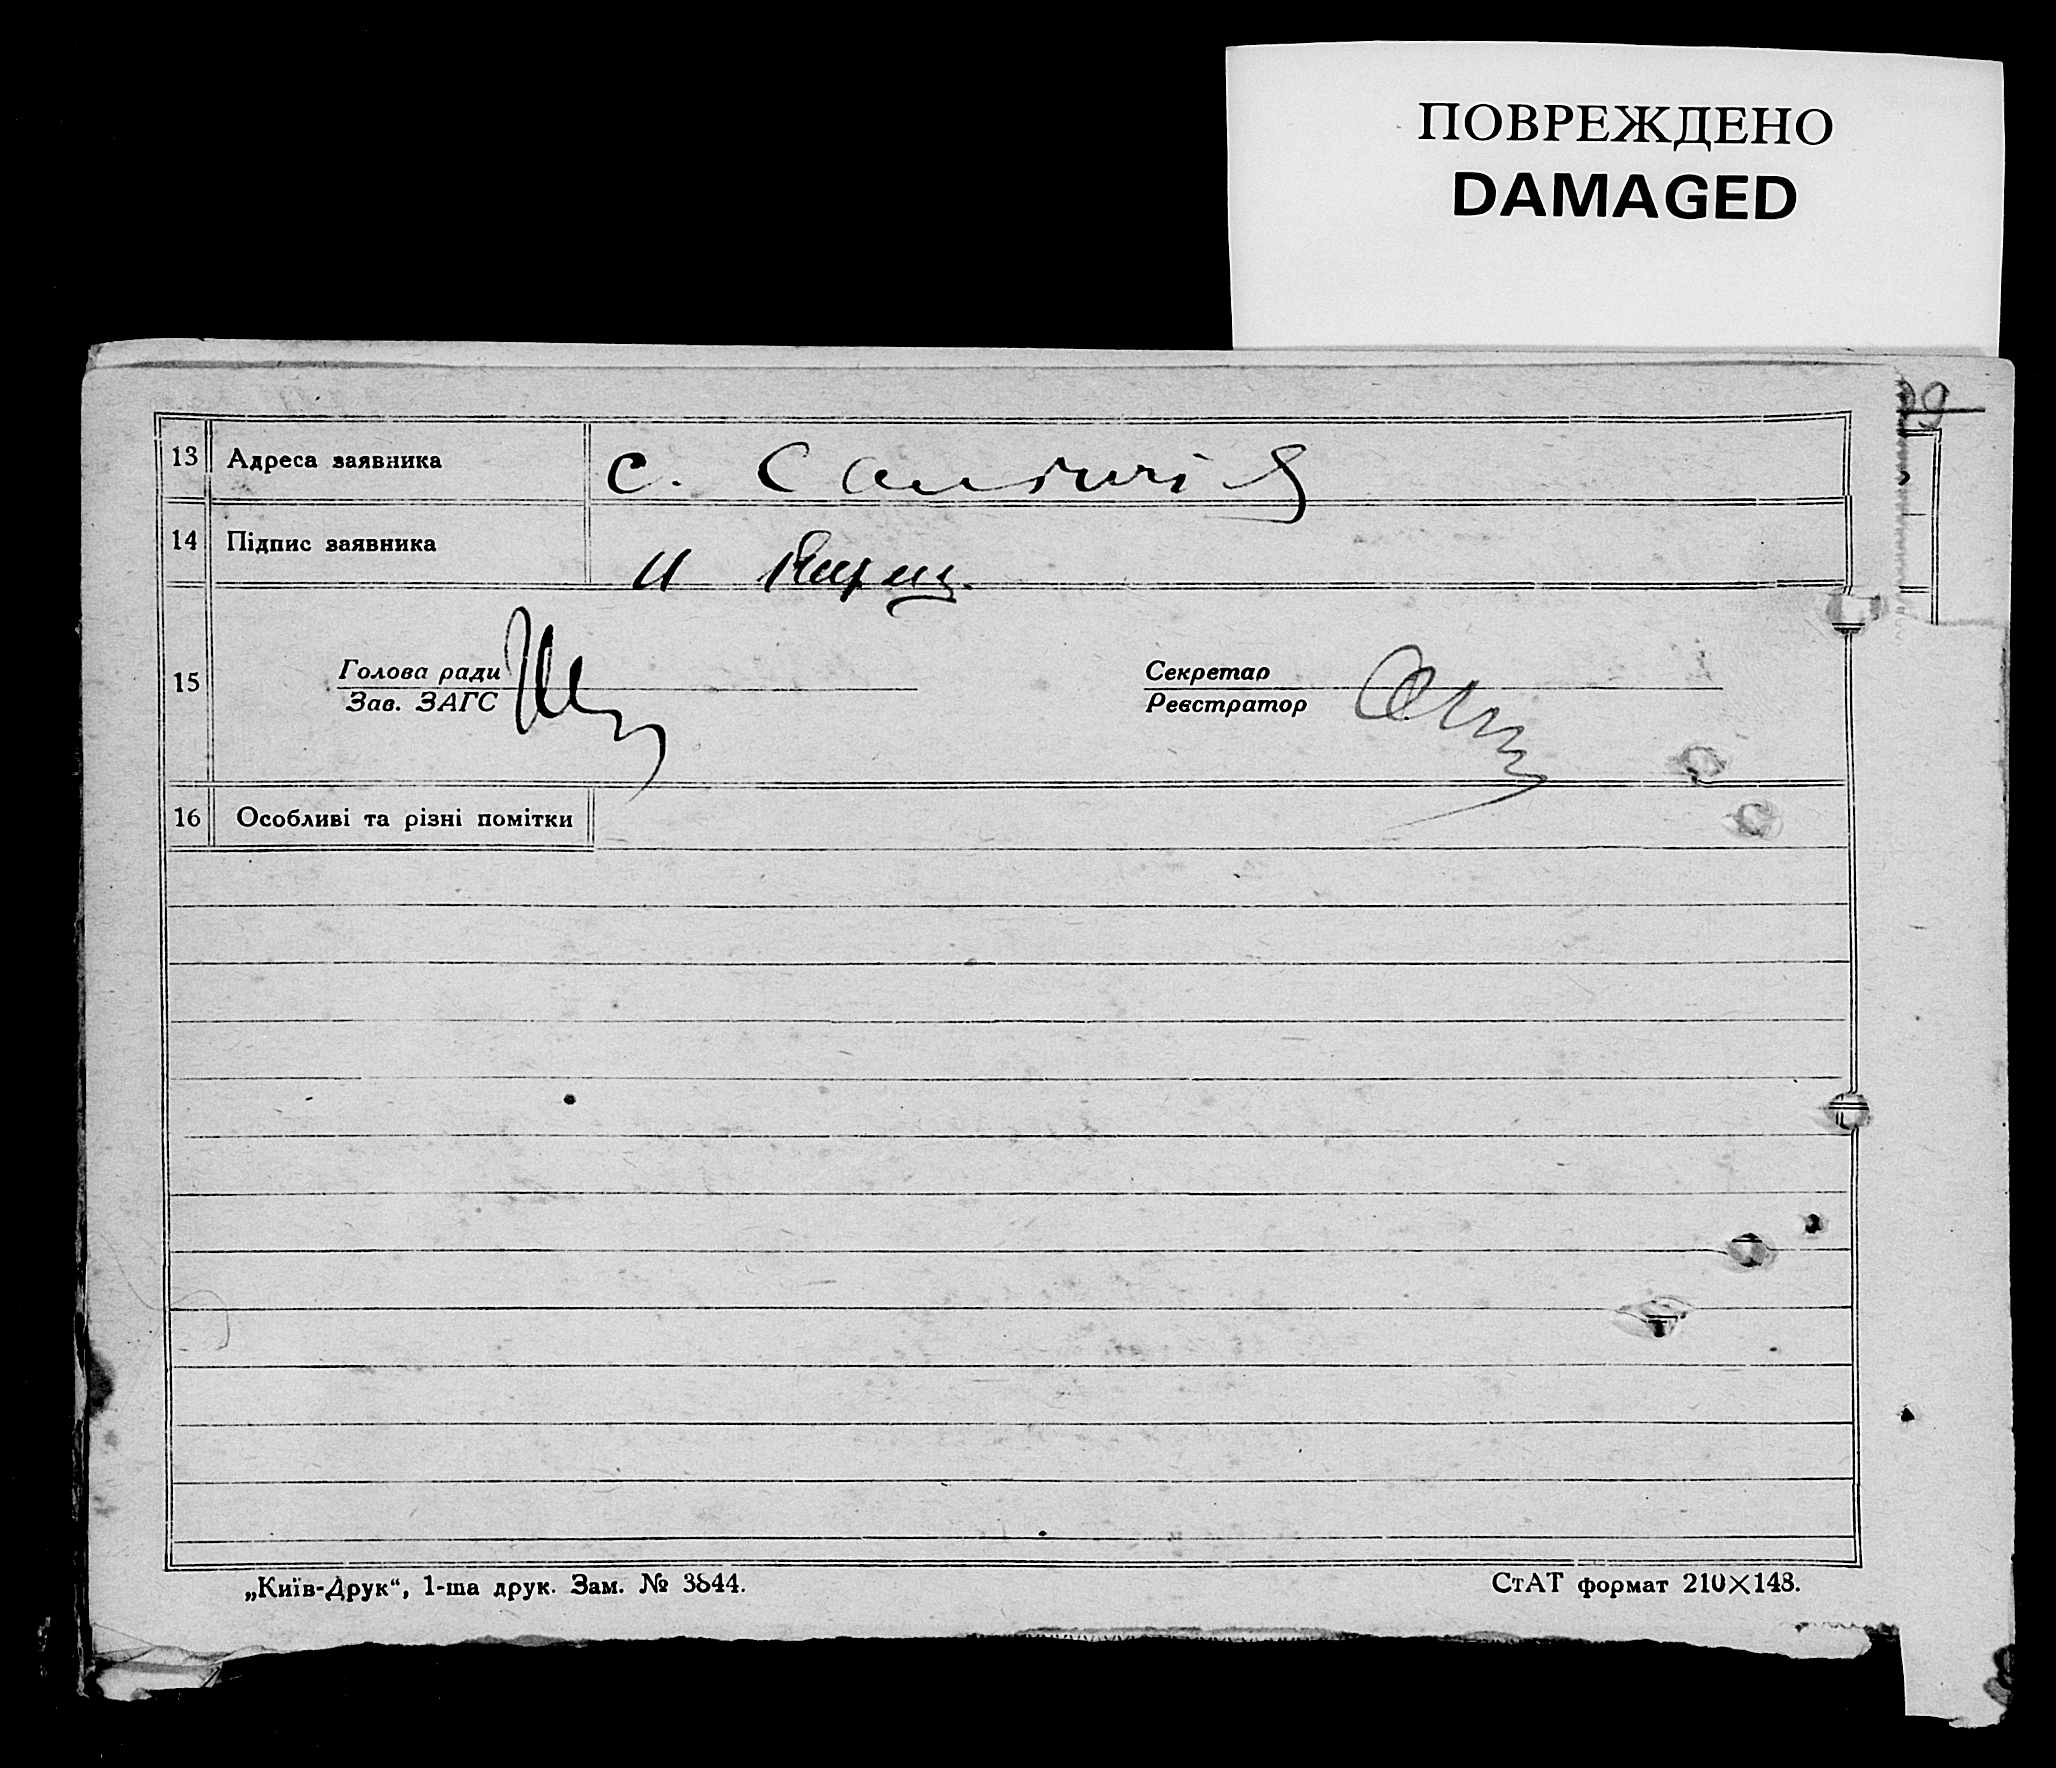 ПОВРЕЖДЕНО
DAMAGED
13 Адреса заявника с.
14 Підпис заявника
15 Голова ради
Зав. ЗАГС
Секретар
Реєстратор
16 Особливі та різні помітки
„Київ-Друк“, 1-ша друк. Зам. № 3844.
СтАТ формат 210×148.